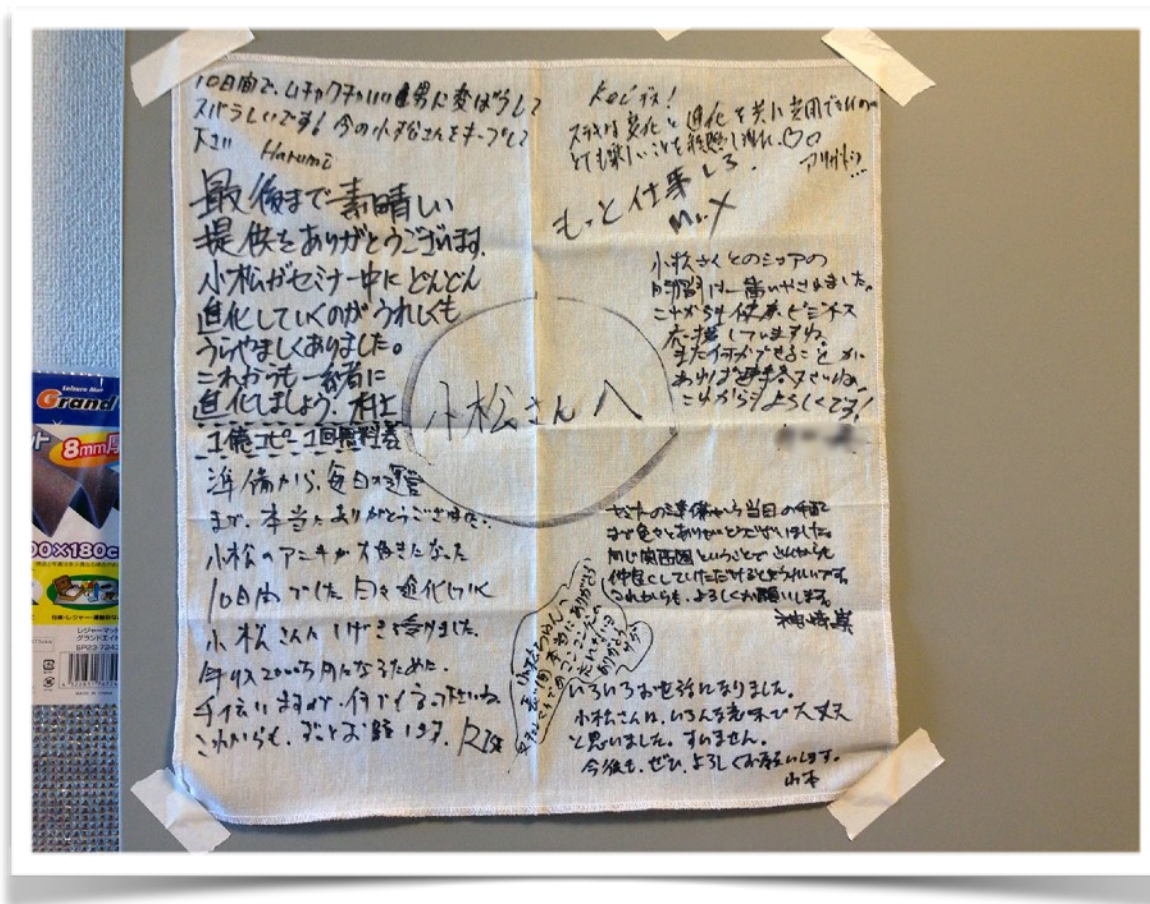 10日間で、ムチャクチャいい男に変ぼうして
スバラしいです! 今の小松さんをキープして
下さい Harumi
最後まで素晴しい
提供をありがとうございます。
小松がセミナー中にどんどん
進化していくのがうれしくも
うらやましくありました。
これからも一緒に
進化しましょう。村上
1億コピー1回無料券
準備から、毎日の運営
まで、本当にありがとうございました。
小松のアニキが大好きになった
10日間でした。日々進化していく
小松さんにしげきを受けました。
年収2000万円になるために、
手伝いますので、何でも言って下さいね。
これからも、ずっとお願いします。
Kojiデス!
ステキな変化と進化を共に共用できたのが
とても楽しいことを
アリガトッ
もっと仕事しろ。
Mr.X
小松さんとのシェアの
時間は一番いやされました。
これからも健康、ビジネス
応援していますね。
また何かできることが
あれば
これからもよろしくです!
小松さんへ
セミナーの準備から当日の手配
まで色々とありがとうございました。
同じ関西圏ということでこれからも
仲良くしていただけるとうれしいです。
これからも、よろしくお願いします。
神崎
本当にありがとう
ありがとう
いろいろお世話になりました。
小松さんは、いろんな意味で大丈夫
と思いました。すいません。
今後も、ぜひ、よろしくお願いします。
山本
Leisure Mat
Grand
8mm厚
00×180c
レジャーマット
グランドエイト